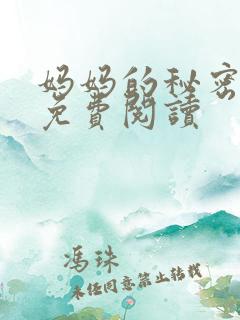 妈妈的秘密
免費閱讀
冯珠
未经同意禁止转载